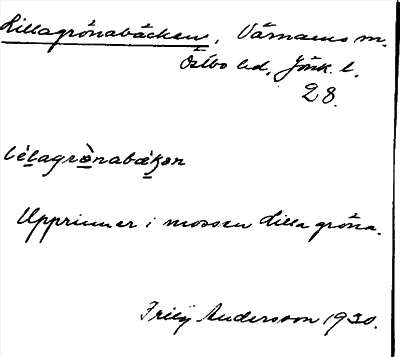 Lillagrönabäcken, Värnamo m.
Östbo hd, Jönk. l.
28.
lèlagrònabækən
Upprinner i mossen Lilla gröna.
Andersson 1930.